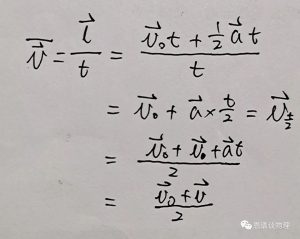 v̄⃗ = l⃗/t = (v⃗₀t + ½a⃗t)/t
= v⃗₀ + a⃗ × t/2 = v⃗_(t/2)
= (v⃗₀ + v⃗₀ + a⃗t)/2
= (v⃗₀ + v⃗)/2